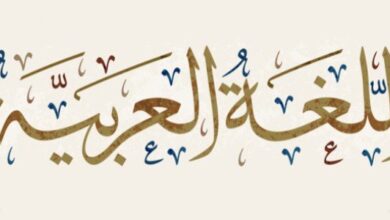 اللّغةُ العربيّة